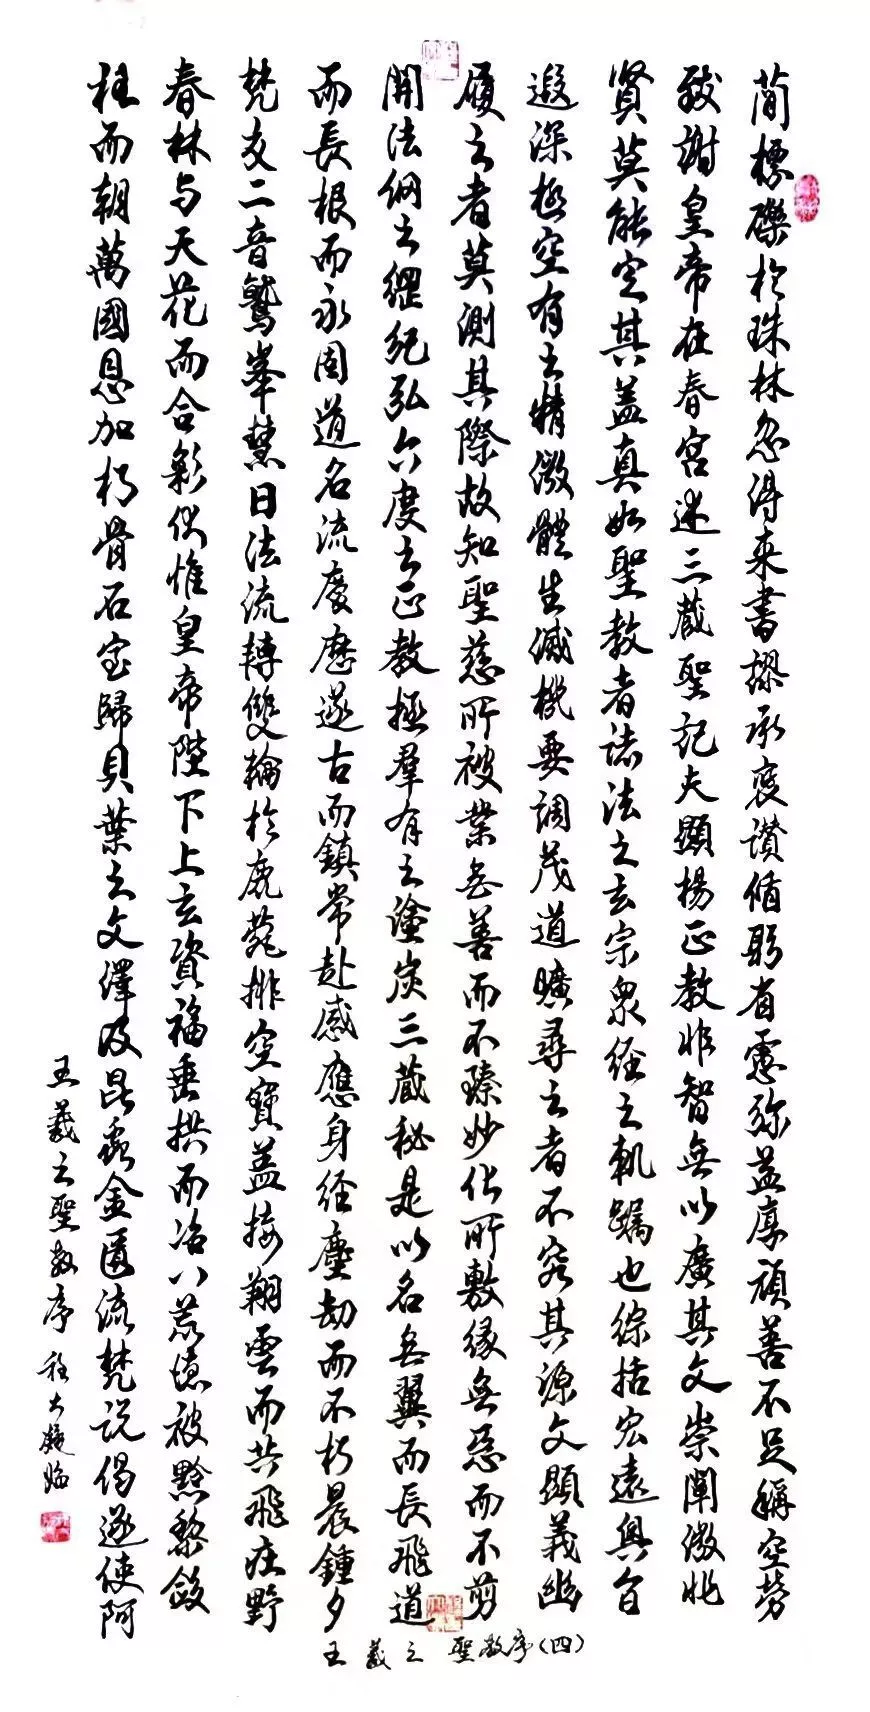 蕳標礫於珠林忽得来書謬承褒讃循躬省慮弥益厚顏善不足稱空勞
致謝皇帝在春宮述三藏聖記夫顯揚正教非智無以廣其文崇闡微非
賢莫能定其盖真如聖教者諸法之玄宗衆經之軌躅也綜括宏遠奧旨
遐深極空有之精微體生滅機要詞茂道曠尋之者不究其源文顯義幽
履之者莫測其際故知聖慈所被業無善而不臻妙化所敷緣無惡而不剪
開法網之綱紀弘六度之正教拯羣有之塗炭三藏秘是以名無翼而長飛道
而長根而永固道名流慶歷遂古而鎮常赴感應身經塵劫而不朽晨鍾夕
梵交二音鷲峯慧日法流轉雙輪於鹿菀排空寶盖接翔雲而共飛庄野
春林与天花而合彩伏惟皇帝陛下上玄資福垂拱而治八荒德被黔黎斂
袵而朝萬國恩加朽骨石室歸貝葉之文澤及昆蟲金匱流梵說偈遂使阿
王羲之聖教序 程大臨
王羲之 聖教序(四)